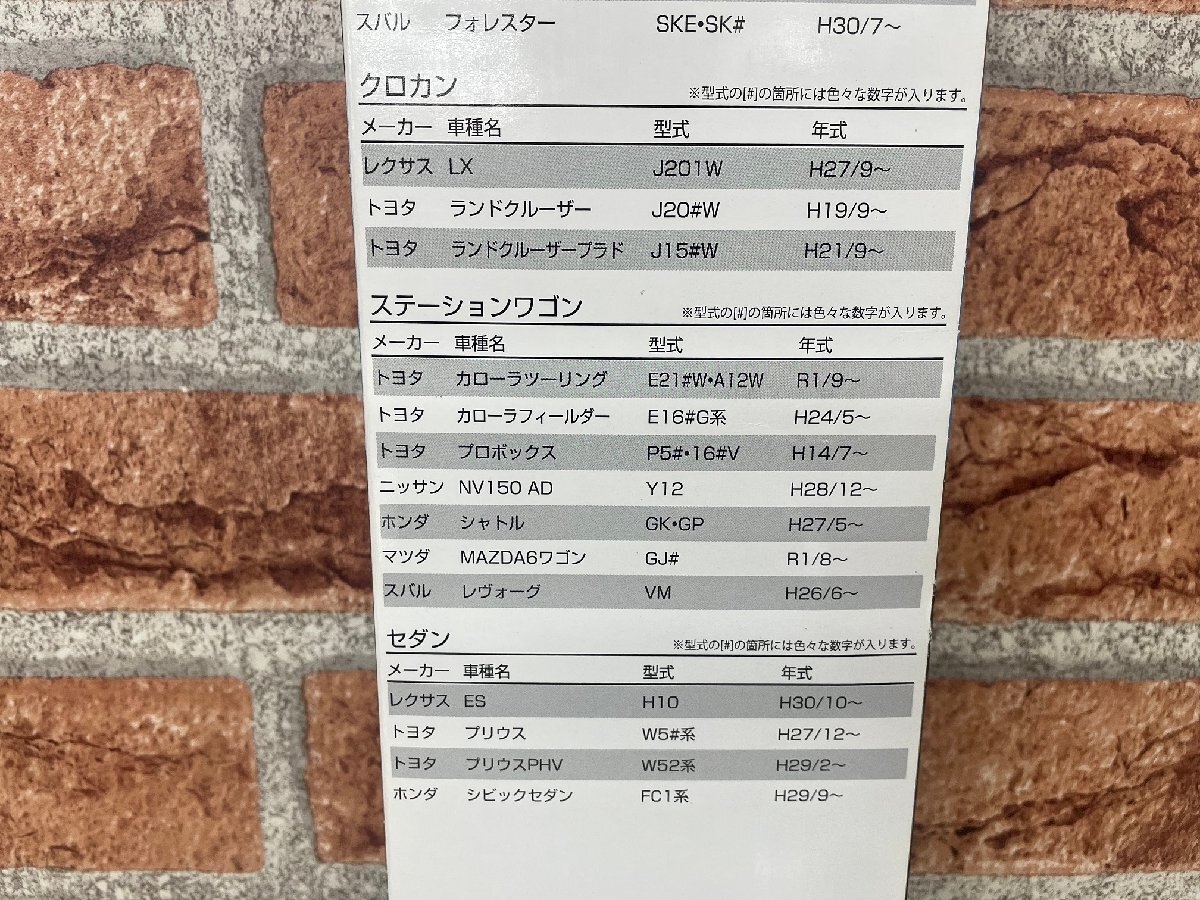 スバル フォレスター SKE・SK# H30/7〜
クロカン ※型式の[#]の箇所には色々な数字が入ります。
メーカー 車種名 型式 年式
レクサス LX J201W H27/9〜
トヨタ ランドクルーザー J20#W H19/9〜
トヨタ ランドクルーザープラド J15#W H21/9〜
ステーションワゴン ※型式の[#]の箇所には色々な数字が入ります。
メーカー 車種名 型式 年式
トヨタ カローラツーリング E21#W・A12W R1/9〜
トヨタ カローラフィールダー E16#G系 H24/5〜
トヨタ プロボックス P5#・16#V H14/7〜
ニッサン NV150 AD Y12 H28/12〜
ホンダ シャトル GK・GP H27/5〜
マツダ MAZDA6ワゴン GJ# R1/8〜
スバル レヴォーグ VM H26/6〜
セダン ※型式の[#]の箇所には色々な数字が入ります。
メーカー 車種名 型式 年式
レクサス ES H10 H30/10〜
トヨタ プリウス W5#系 H27/12〜
トヨタ プリウスPHV W52系 H29/2〜
ホンダ シビックセダン FC1系 H29/9〜